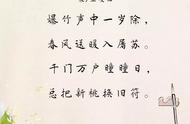 爆竹声中一岁除，
春风送暖入屠苏。
千门万户曈曈日，
总把新桃换旧符。